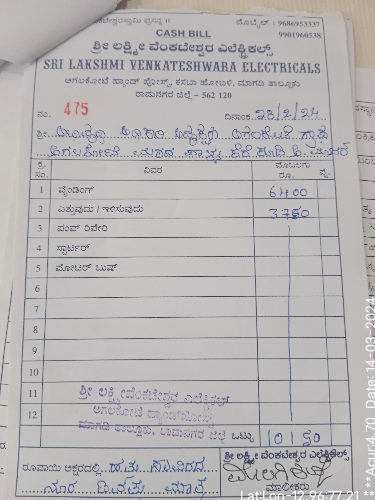 ಮೊಬೈಲ್ : 9686953337
CASH BILL 9901960538
ಶ್ರೀ ಲಕ್ಷ್ಮೀ ವೆಂಕಟೇಶ್ವರ ಎಲೆಕ್ಟ್ರಿಕಲ್ಸ್
SRI LAKSHMI VENKATESHWARA ELECTRICALS
ಅಗಲಕೋಟೆ ಹ್ಯಾಂಡ್ ಪೋಸ್ಟ್, ಕಸಬಾ ಹೋಬಳಿ, ಮಾಗಡಿ ತಾಲ್ಲೂಕು
ರಾಮನಗರ ಜಿಲ್ಲೆ - 562 120
ನಂ. 475 ದಿನಾಂಕ 23/2/24
ಶ್ರೀ
ಕ್ರ. ಸಂ. ವಿವರ ಮೊಬಲಗು ರೂ. ಪೈ.
1 ವೈಂಡಿಂಗ್ 6400
2 ಎತ್ತುವುದು / ಇಳಿಸುವುದು 3750
3 ಪಂಪ್ ರಿಪೇರಿ
4 ಸ್ಟಾರ್ಟರ್
5 ಮೋಟರ್ ಬುಷ್
6
7
8
9
10
11 ಶ್ರೀ ಲಕ್ಷ್ಮೀವೆಂಕಟೇಶ್ವರ ಎಲೆಕ್ಟ್ರಿಕಲ್
ಅಗಲಕೋಟೆ ಹ್ಯಾಂಡ್‌ಪೋಸ್ಟ್
12 ಮಾಗಡಿ ತಾಲ್ಲೂಕು, ರಾಮನಗರ ಜಿಲ್ಲೆ ಒಟ್ಟು 10150
ಶ್ರೀ ಲಕ್ಷ್ಮೀ ವೆಂಕಟೇಶ್ವರ ಎಲೆಕ್ಟ್ರಿಕಲ್ಸ್
ರೂಪಾಯಿ ಅಕ್ಷರದಲ್ಲಿ ಹತ್ತು ಸಾವಿರದ
ನೂರ ಐವತ್ತು ಮಾತ್ರ
ಮಾಲೀಕರು
**Acur:4.70 Date: 14-03-2024